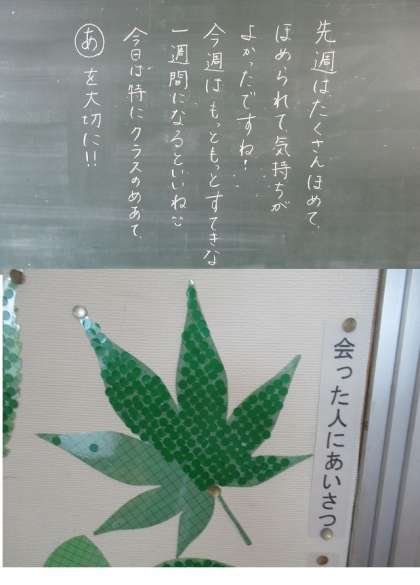 先週はたくさんほめて、
ほめられて気持ちが
よかったですね!
今週はもっともっとすてきな
一週間になるといいね
今日は特にクラスのめあて、
あを大切に!!
会った人にあいさつ